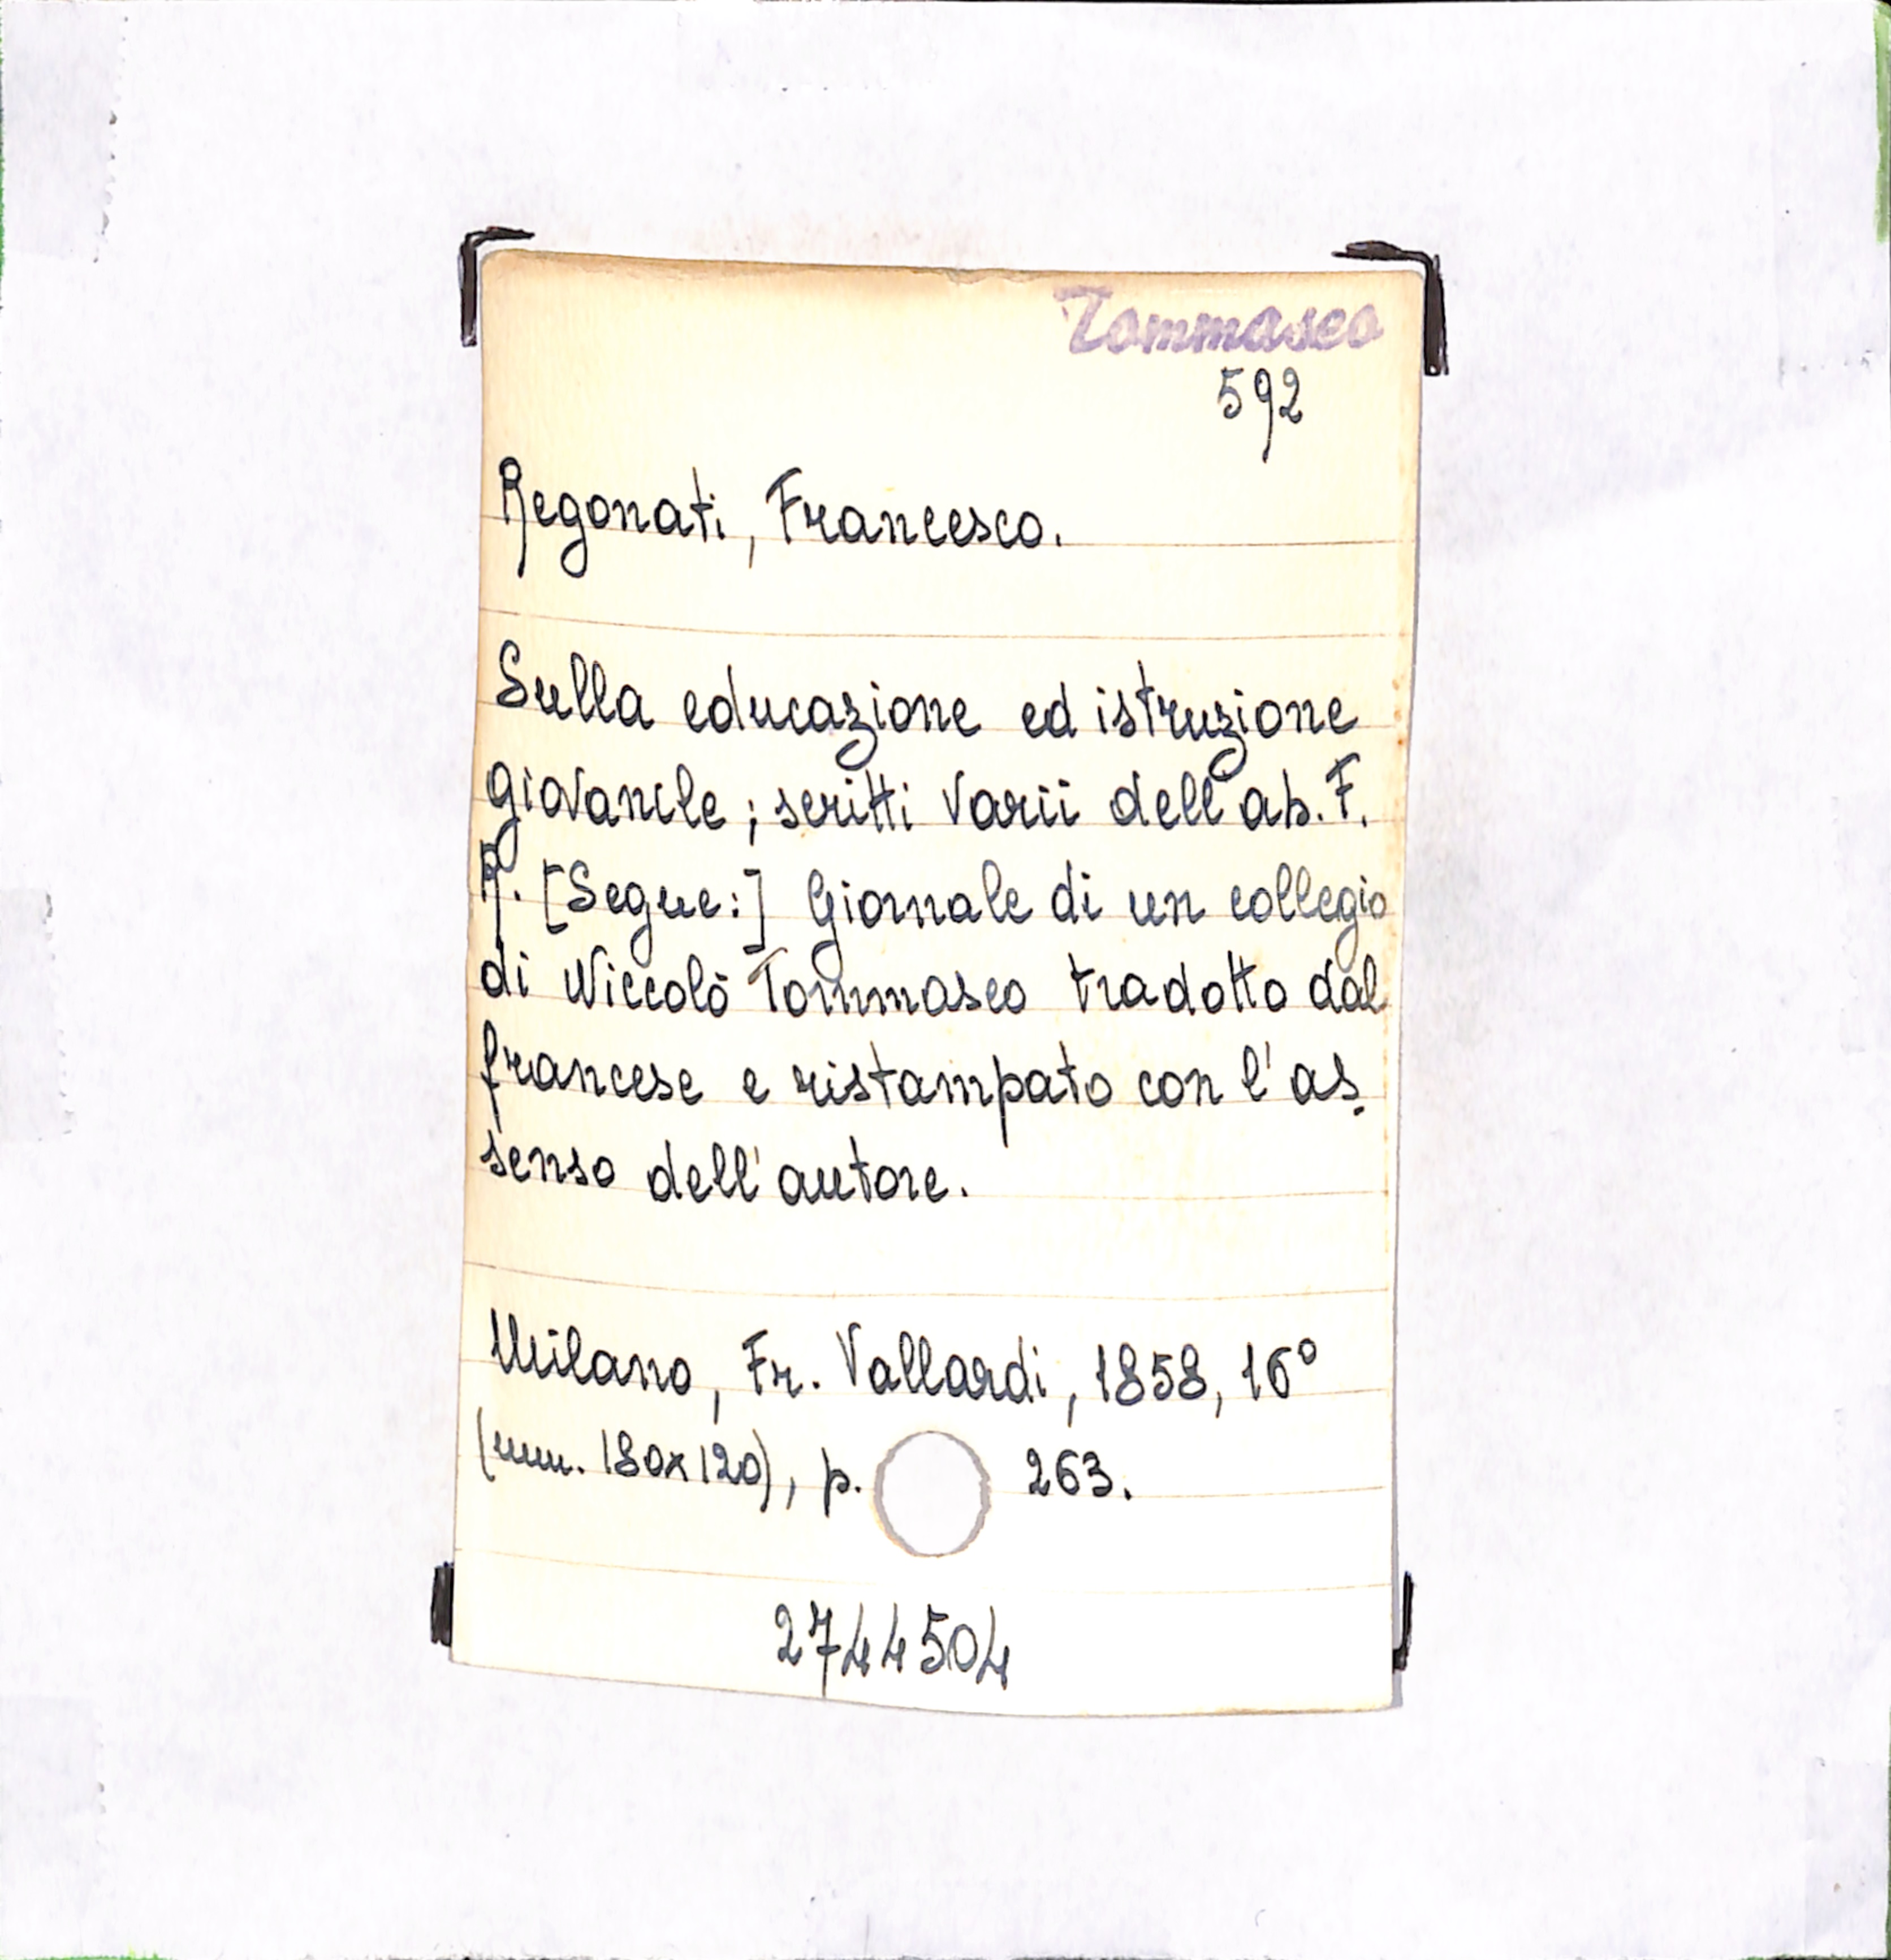 Tommaseo
592
Regonati, Francesco.
Sulla educazione ed istruzione
giovanile; scritti varii dell'ab. F.
R. [Segue:] Giornale di un collegio
di Niccolò Tommaseo tradotto dal
francese e ristampato con l'as.
senso dell'autore.
Milano, Fr. Vallardi, 1858, 16°
(mm. 180x120), p. 263.
2744504